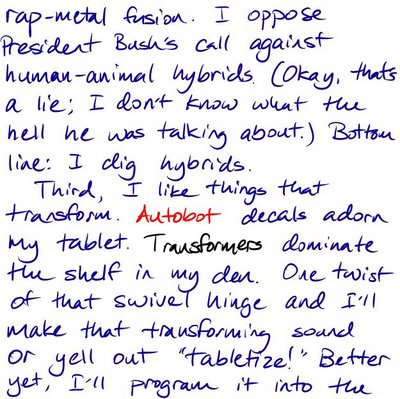 rap-metal fusion. I oppose
President Bush's call against
human-animal hybrids. (Okay, thats
a lie; I don't know what the
hell he was talking about.) Bottom
line: I dig hybrids.
Third, I like things that
transform. Autobot decals adorn
my tablet. Transformers dominate
the shelf in my den. One twist
of that swivel hinge and I'll
make that transforming sound
or yell out "tabletize!" Better
yet, I'll program it into the